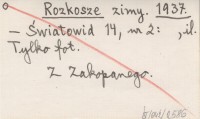 Rozkosze zimy. 1937.
— Światowid 14, nr 2: , il.
Tylko fot.
Z Zakopanego.